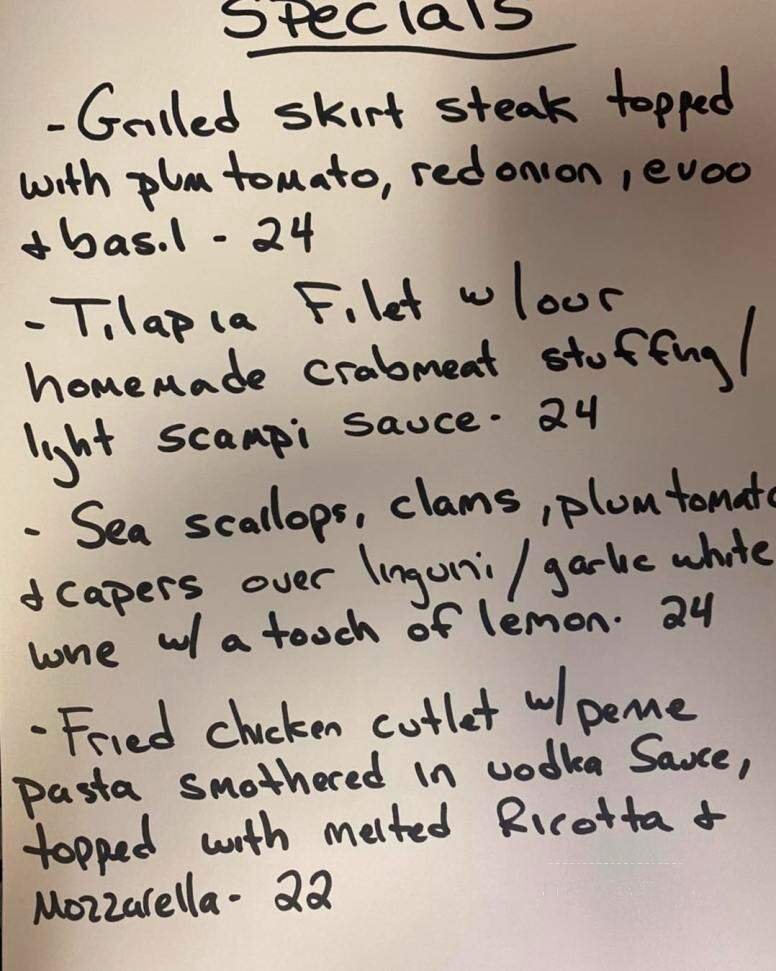 Specials
- Grilled skirt steak topped
with plum tomato, red onion, evoo
+ basil - 24
- Tilapia Filet w/our
homemade crabmeat stuffing/
light scampi sauce - 24
- Sea scallops, clams, plum tomato
+ capers over linguni/garlic white
wine w/ a touch of lemon - 24
- Fried chicken cutlet w/penne
pasta smothered in vodka Sauce,
topped with melted Ricotta +
Mozzarella - 22